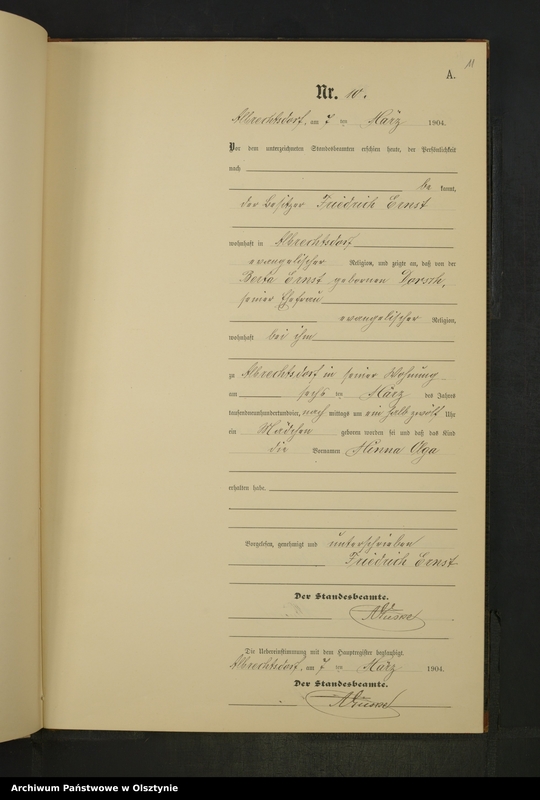 11
A.
Nr. 10.
Albrechtsdorf, am 7 ten März 1904.
Vor dem unterzeichneten Standesbeamten erschien heute, der Persönlichkeit
nach
be kannt,
der Besitzer Friedrich Ernst
wohnhaft in Albrechtsdorf
evangelischer Religion, und zeigte an, daß von der
Berta Ernst gebornen Dorsch,
seiner Ehefrau
evangelischer Religion,
wohnhaft bei ihm
zu Albrechtsdorf in seiner Wohnung
am sechs ten März des Jahres
tausendneunhundert, nach mittags um ein halb zwölf Uhr
ein Mädchen geboren worden sei und daß das Kind
die Vornamen Minna Olga
erhalten habe.
Vorgelesen, genehmigt und unterschrieben
Friedrich Ernst
Der Standesbeamte.
Die Uebereinstimmung mit dem Hauptregister beglaubigt
Albrechtsdorf, am 7 ten März 1904.
Der Standesbeamte.
Archiwum Państwowe w Olsztynie